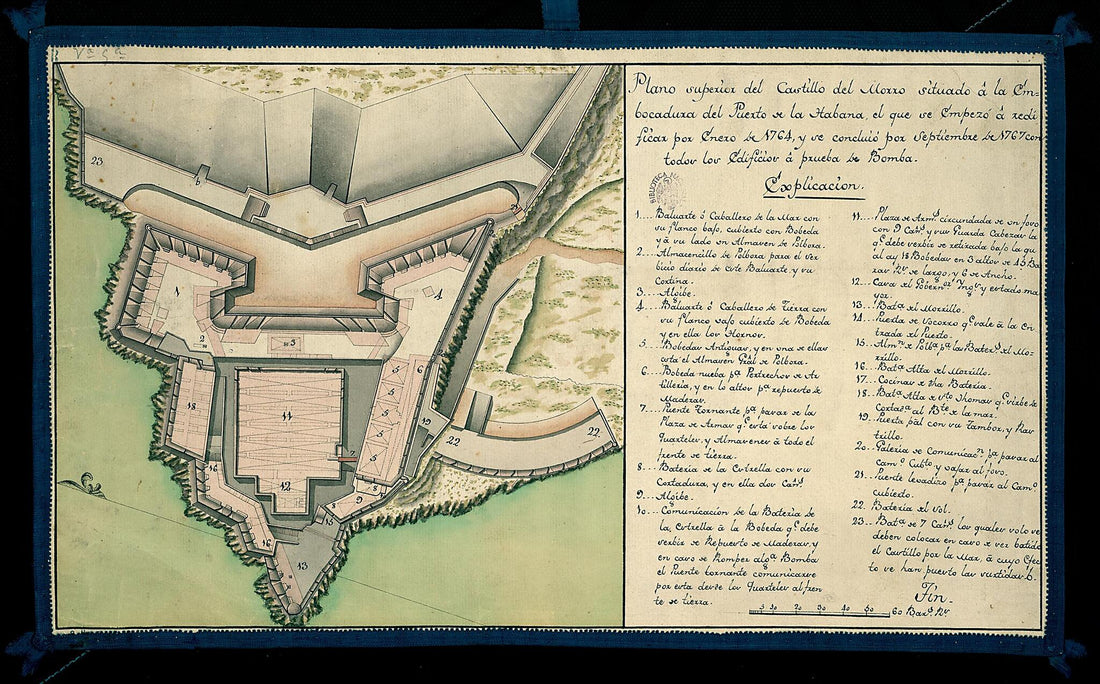 Plano superior del Castillo del Morro situado á la Em=
bocadura del Puerto de la Habana, el que se Empezó á redi
ficar por Enero de 1764, y se concluió por Septiembre de 1767 con
todos los Edificios á prueba de Bomba.
Explicacion.
1.... Baluarte ó Caballero de la Mar con
su flanco bajo, cubierto con Bobeda
y á su lado un Almacen de Polbora.
2.... Almacencillo de Polbora para el ser
bicio diario de este Baluarte y su
Cortina.
3.... Algibe.
4.... Baluarte ó Caballero de Tierra con
su flanco vajo cubierto de Bobeda
y en ella los Hornos.
5.... Bobedas Antiguas, y en una de ellas
está el Almacen Gral de Polbora.
6.... Bobeda nueba pa. Pertrechos de Ar
tilleria, y en lo altos pa. repuesto de
Maderas.
7.... Puente tornante pa. pasar de la
Plaza de Armas qe. está sobre los
Quarteles y Almacenes á todo el
frente de tierra.
8.... Bateria de la Estrella con su
Cortadura, y en ella dos Cans.
9.... Algibe.
10.... Comunicacion de la Bateria de
la Estrella á la Bobeda qe. debe
serbir de Repuesto de Maderas, y
en caso de Romper algª. Bomba
el Puente tornante comunicarse
por esta desde los Quarteles al fren
te de tierra.
11.... Plaza de Armª. circundada de un foso
con 9 Cans. y sus Guarda Cabezas la
qe. debe serbir de retirada bajo la qu
al ay 18 Bobedas en 3 altos de 15 Ba
ras Rs. de largo, y 6 de Ancho.
12.... Casa del Gobernor. Yngr. y estado ma
yor.
13.... Bata. del Morrillo.
14.... Puerta de Socorro qe. sale á la En
trada del Puerto.
15.... Almn. de Polba. pa. las Bateras. del Mo=
rrillo.
16.... Bata. Alta del Morrillo.
17.... Cocinas de dha Bateria.
18.... Bata. Alta de Sto. Thomas qe. sirbe de
Cortada. al Bte. de la mar.
19.... Puerta pal. con su Tambor, y Ras
trillo.
20.... Galeria de Comunicacn. pa. pasar al
Camo. Cubto. y vajar al foso.
21.... Puente levadizo pa. pasar al Camo.
cubierto.
22.... Bateria del Sol.
23.... Bata. de 7 Cans. los quales solo se
deben colocar en caso de ser batido
el Castillo por la Mar, á cuyo efec
to se han puesto las surtidas b.
Fin.
5 10 20 30 40 50 60 Bars. Rs.
23
b
21
1
4
2
3
5
6
5
5
5
18
11
7
19
22
22
12
9
8
8
16
15
16
13
BIBLIOTECA